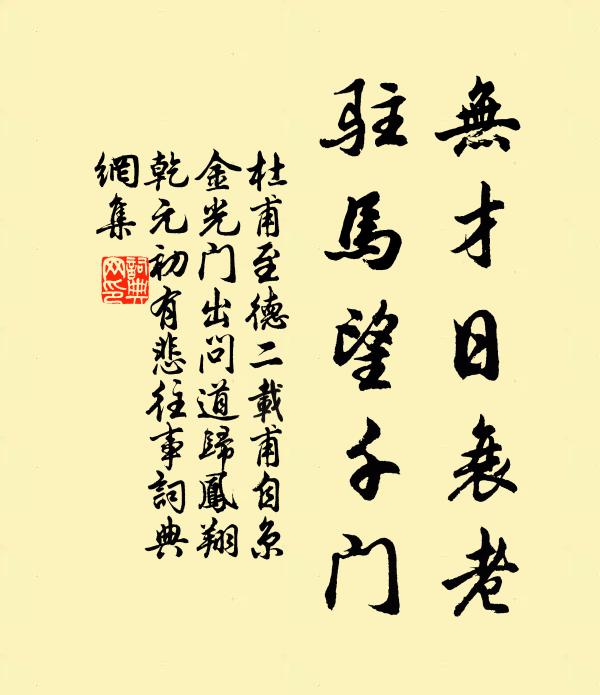 無才日衰老
駐馬望千門
杜甫至德二載甫自京
金光门出问道歸鳳翔
乾元初有悲往事詞典
網集
詞典
网印